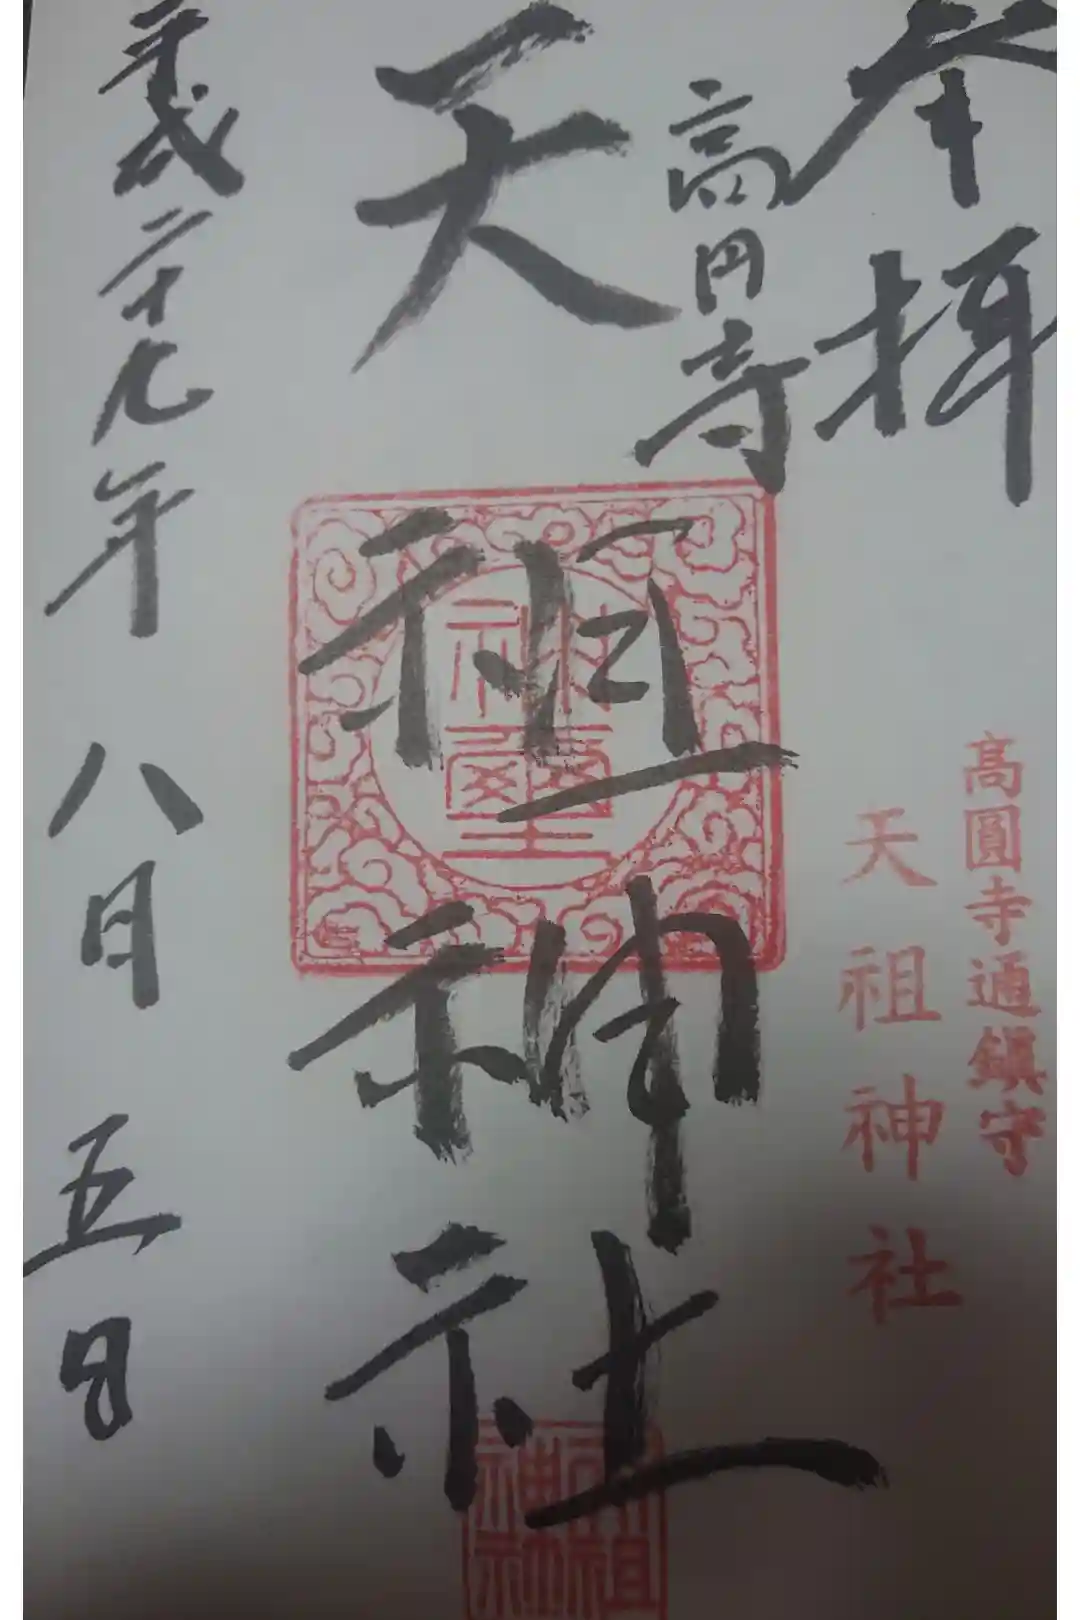 奉拝
高円寺
天祖神社
平成二十九年八月五日
高圓寺通鎮守
天祖神社